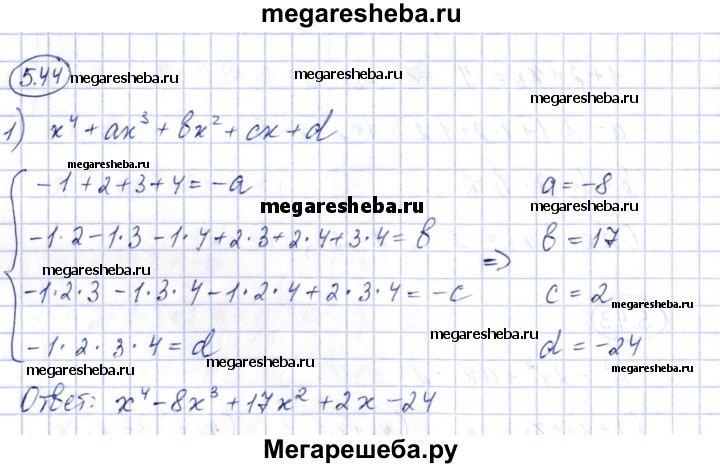 megaresheba.ru
5.44 megaresheba.ru megaresheba.ru
megaresheba.ru
1) x⁴ + ax³ + bx² + cx + d
megaresheba.ru
-1+2+3+4=-a a=-8
megaresheba.ru
-1·2-1·3-1·4+2·3+2·4+3·4=b ⇒ b=17
megaresheba.ru megaresheba.ru
-1·2·3-1·3·4-1·2·4+2·3·4=-c c=2
megaresheba.ru
-1·2·3·4=d d=-24
megaresheba.ru megaresheba.ru megaresheba.ru megaresheba.ru
Ответ: x⁴-8x³+17x²+2x-24
Мегарешеба.ру